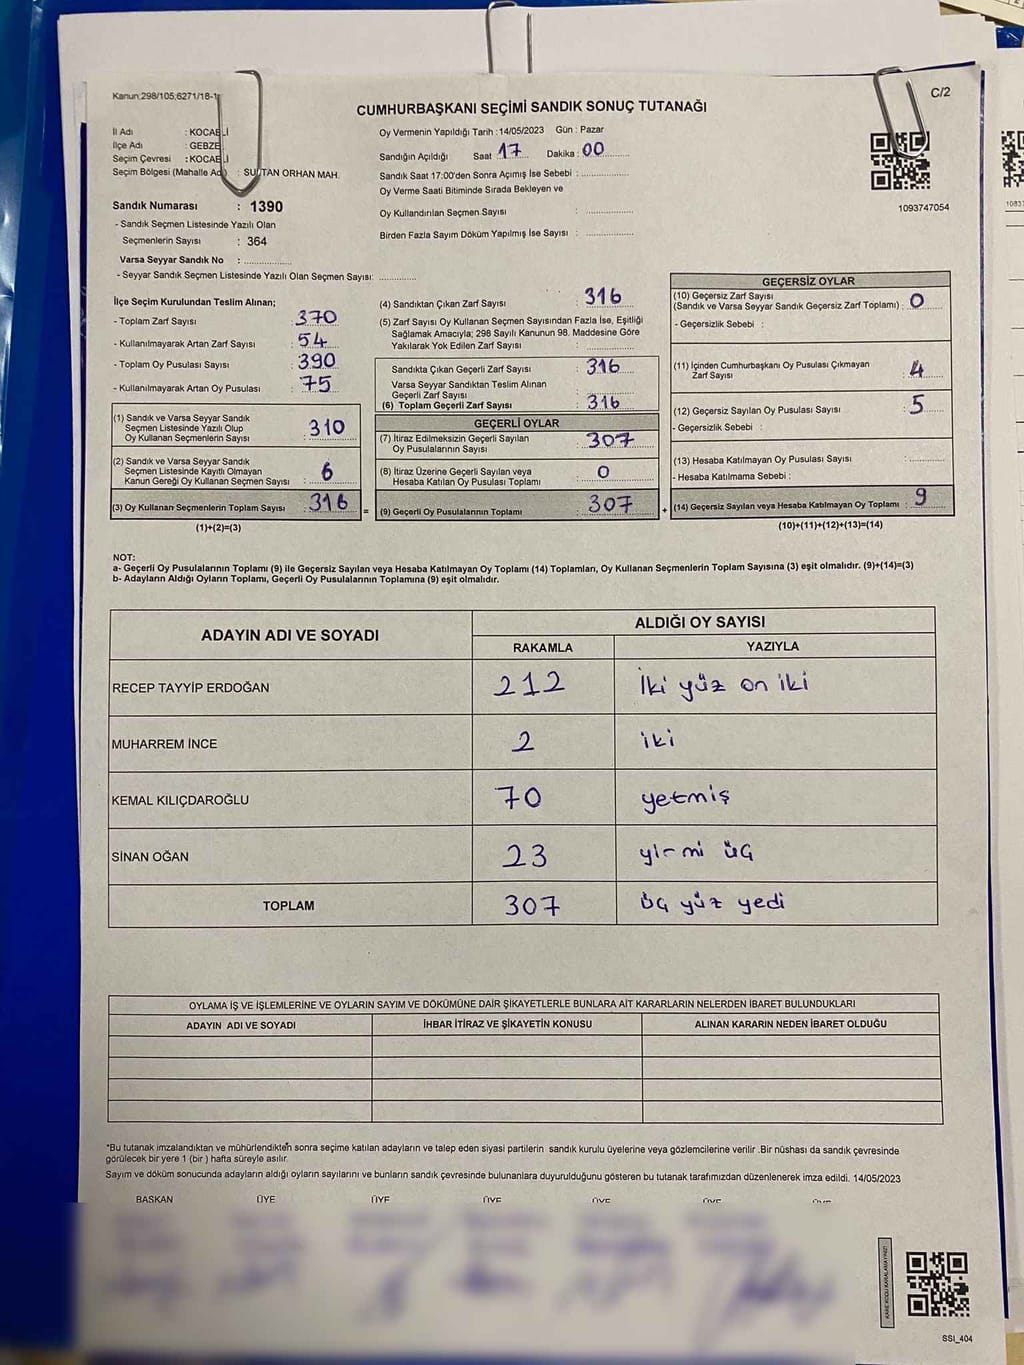 Kanun;298/105;6271/18-1
C/2
CUMHURBAŞKANI SEÇİMİ SANDIK SONUÇ TUTANAĞI
İl Adı : KOCAELİ
İlçe Adı : GEBZE
Seçim Çevresi : KOCAELİ
Seçim Bölgesi (Mahalle Adı) : SULTAN ORHAN MAH.
Sandık Numarası : 1390
- Sandık Seçmen Listesinde Yazılı Olan
Seçmenlerin Sayısı : 364
Varsa Seyyar Sandık No : ................
- Seyyar Sandık Seçmen Listesinde Yazılı Olan Seçmen Sayısı: ............
Oy Vermenin Yapıldığı Tarih : 14/05/2023 Gün : Pazar
Sandığın Açıldığı Saat 17 Dakika : 00
Sandık Saat 17:00'den Sonra Açımış İse Sebebi : ................
Oy Verme Saati Bitiminde Sırada Bekleyen ve
Oy Kullandırılan Seçmen Sayısı : ................
Birden Fazla Sayım Döküm Yapılmış İse Sayısı : ................
1093747054
İlçe Seçim Kurulundan Teslim Alınan;
- Toplam Zarf Sayısı : 370
- Kullanılmayarak Artan Zarf Sayısı : 54
- Toplam Oy Pusulası Sayısı : 390
- Kullanılmayarak Artan Oy Pusulası : 75
(1) Sandık ve Varsa Seyyar Sandık
Seçmen Listesinde Yazılı Olup
Oy Kullanan Seçmenlerin Sayısı : 310
(2) Sandık ve Varsa Seyyar Sandık
Seçmen Listesinde Kayıtlı Olmayan
Kanun Gereği Oy Kullanan Seçmen Sayısı : 6
(3) Oy Kullanan Seçmenlerin Toplam Sayısı : 316
(1)+(2)=(3)
=
(4) Sandıktan Çıkan Zarf Sayısı : 316
(5) Zarf Sayısı Oy Kullanan Seçmen Sayısından Fazla İse, Eşitliği
Sağlamak Amacıyla; 298 Sayılı Kanunun 98. Maddesine Göre
Yakılarak Yok Edilen Zarf Sayısı : ................
Sandıkta Çıkan Geçerli Zarf Sayısı : 316
Varsa Seyyar Sandıktan Teslim Alınan
Geçerli Zarf Sayısı :
(6) Toplam Geçerli Zarf Sayısı : 316
GEÇERLİ OYLAR
(7) İtiraz Edilmeksizin Geçerli Sayılan
Oy Pusulalarının Sayısı : 307
(8) İtiraz Üzerine Geçerli Sayılan veya
Hesaba Katılan Oy Pusulası Toplamı : 0
(9) Geçerli Oy Pusulalarının Toplamı : 307
+
GEÇERSİZ OYLAR
(10) Geçersiz Zarf Sayısı
(Sandık ve Varsa Seyyar Sandık Geçersiz Zarf Toplamı) : 0
- Geçersizlik Sebebi :
(11) İçinden Cumhurbaşkanı Oy Pusulası Çıkmayan
Zarf Sayısı : 4
(12) Geçersiz Sayılan Oy Pusulası Sayısı : 5
- Geçersizlik Sebebi :
(13) Hesaba Katılmayan Oy Pusulası Sayısı : ............
- Hesaba Katılmama Sebebi :
(14) Geçersiz Sayılan veya Hesaba Katılmayan Oy Toplamı : 9
(10)+(11)+(12)+(13)=(14)
NOT:
a- Geçerli Oy Pusulalarının Toplamı (9) ile Geçersiz Sayılan veya Hesaba Katılmayan Oy Toplamı (14) Toplamları, Oy Kullanan Seçmenlerin Toplam Sayısına (3) eşit olmalıdır. (9)+(14)=(3)
b- Adayların Aldığı Oyların Toplamı, Geçerli Oy Pusulalarının Toplamına (9) eşit olmalıdır.
ADAYIN ADI VE SOYADI ALDIĞI OY SAYISI
RAKAMLA YAZIYLA
RECEP TAYYİP ERDOĞAN 212 İki yüz on iki
MUHARREM İNCE 2 iki
KEMAL KILIÇDAROĞLU 70 yetmiş
SİNAN OĞAN 23 yirmi üç
TOPLAM 307 üç yüz yedi
OYLAMA İŞ VE İŞLEMLERİNE VE OYLARIN SAYIM VE DÖKÜMÜNE DAİR ŞİKAYETLERLE BUNLARA AİT KARARLARIN NELERDEN İBARET BULUNDUKLARI
ADAYIN ADI VE SOYADI İHBAR İTİRAZ VE ŞİKAYETİN KONUSU ALINAN KARARIN NEDEN İBARET OLDUĞU
*Bu tutanak imzalandıktan ve mühürlendikten sonra seçime katılan adayların ve talep eden siyasi partilerin sandık kurulu üyelerine veya gözlemcilerine verilir .Bir nüshası da sandık çevresinde
görülecek bir yere 1 (bir ) hafta süreyle asılır.
Sayım ve döküm sonucunda adayların aldığı oyların sayılarını ve bunların sandık çevresinde bulunanlara duyurulduğunu gösteren bu tutanak tarafımızdan düzenlenerek imza edildi. 14/05/2023
BAŞKAN ÜYE ÜYE ÜYE ÜYE ÜYE ÜYE
KARE KODU KARALAMAYINIZ!
SSI_404